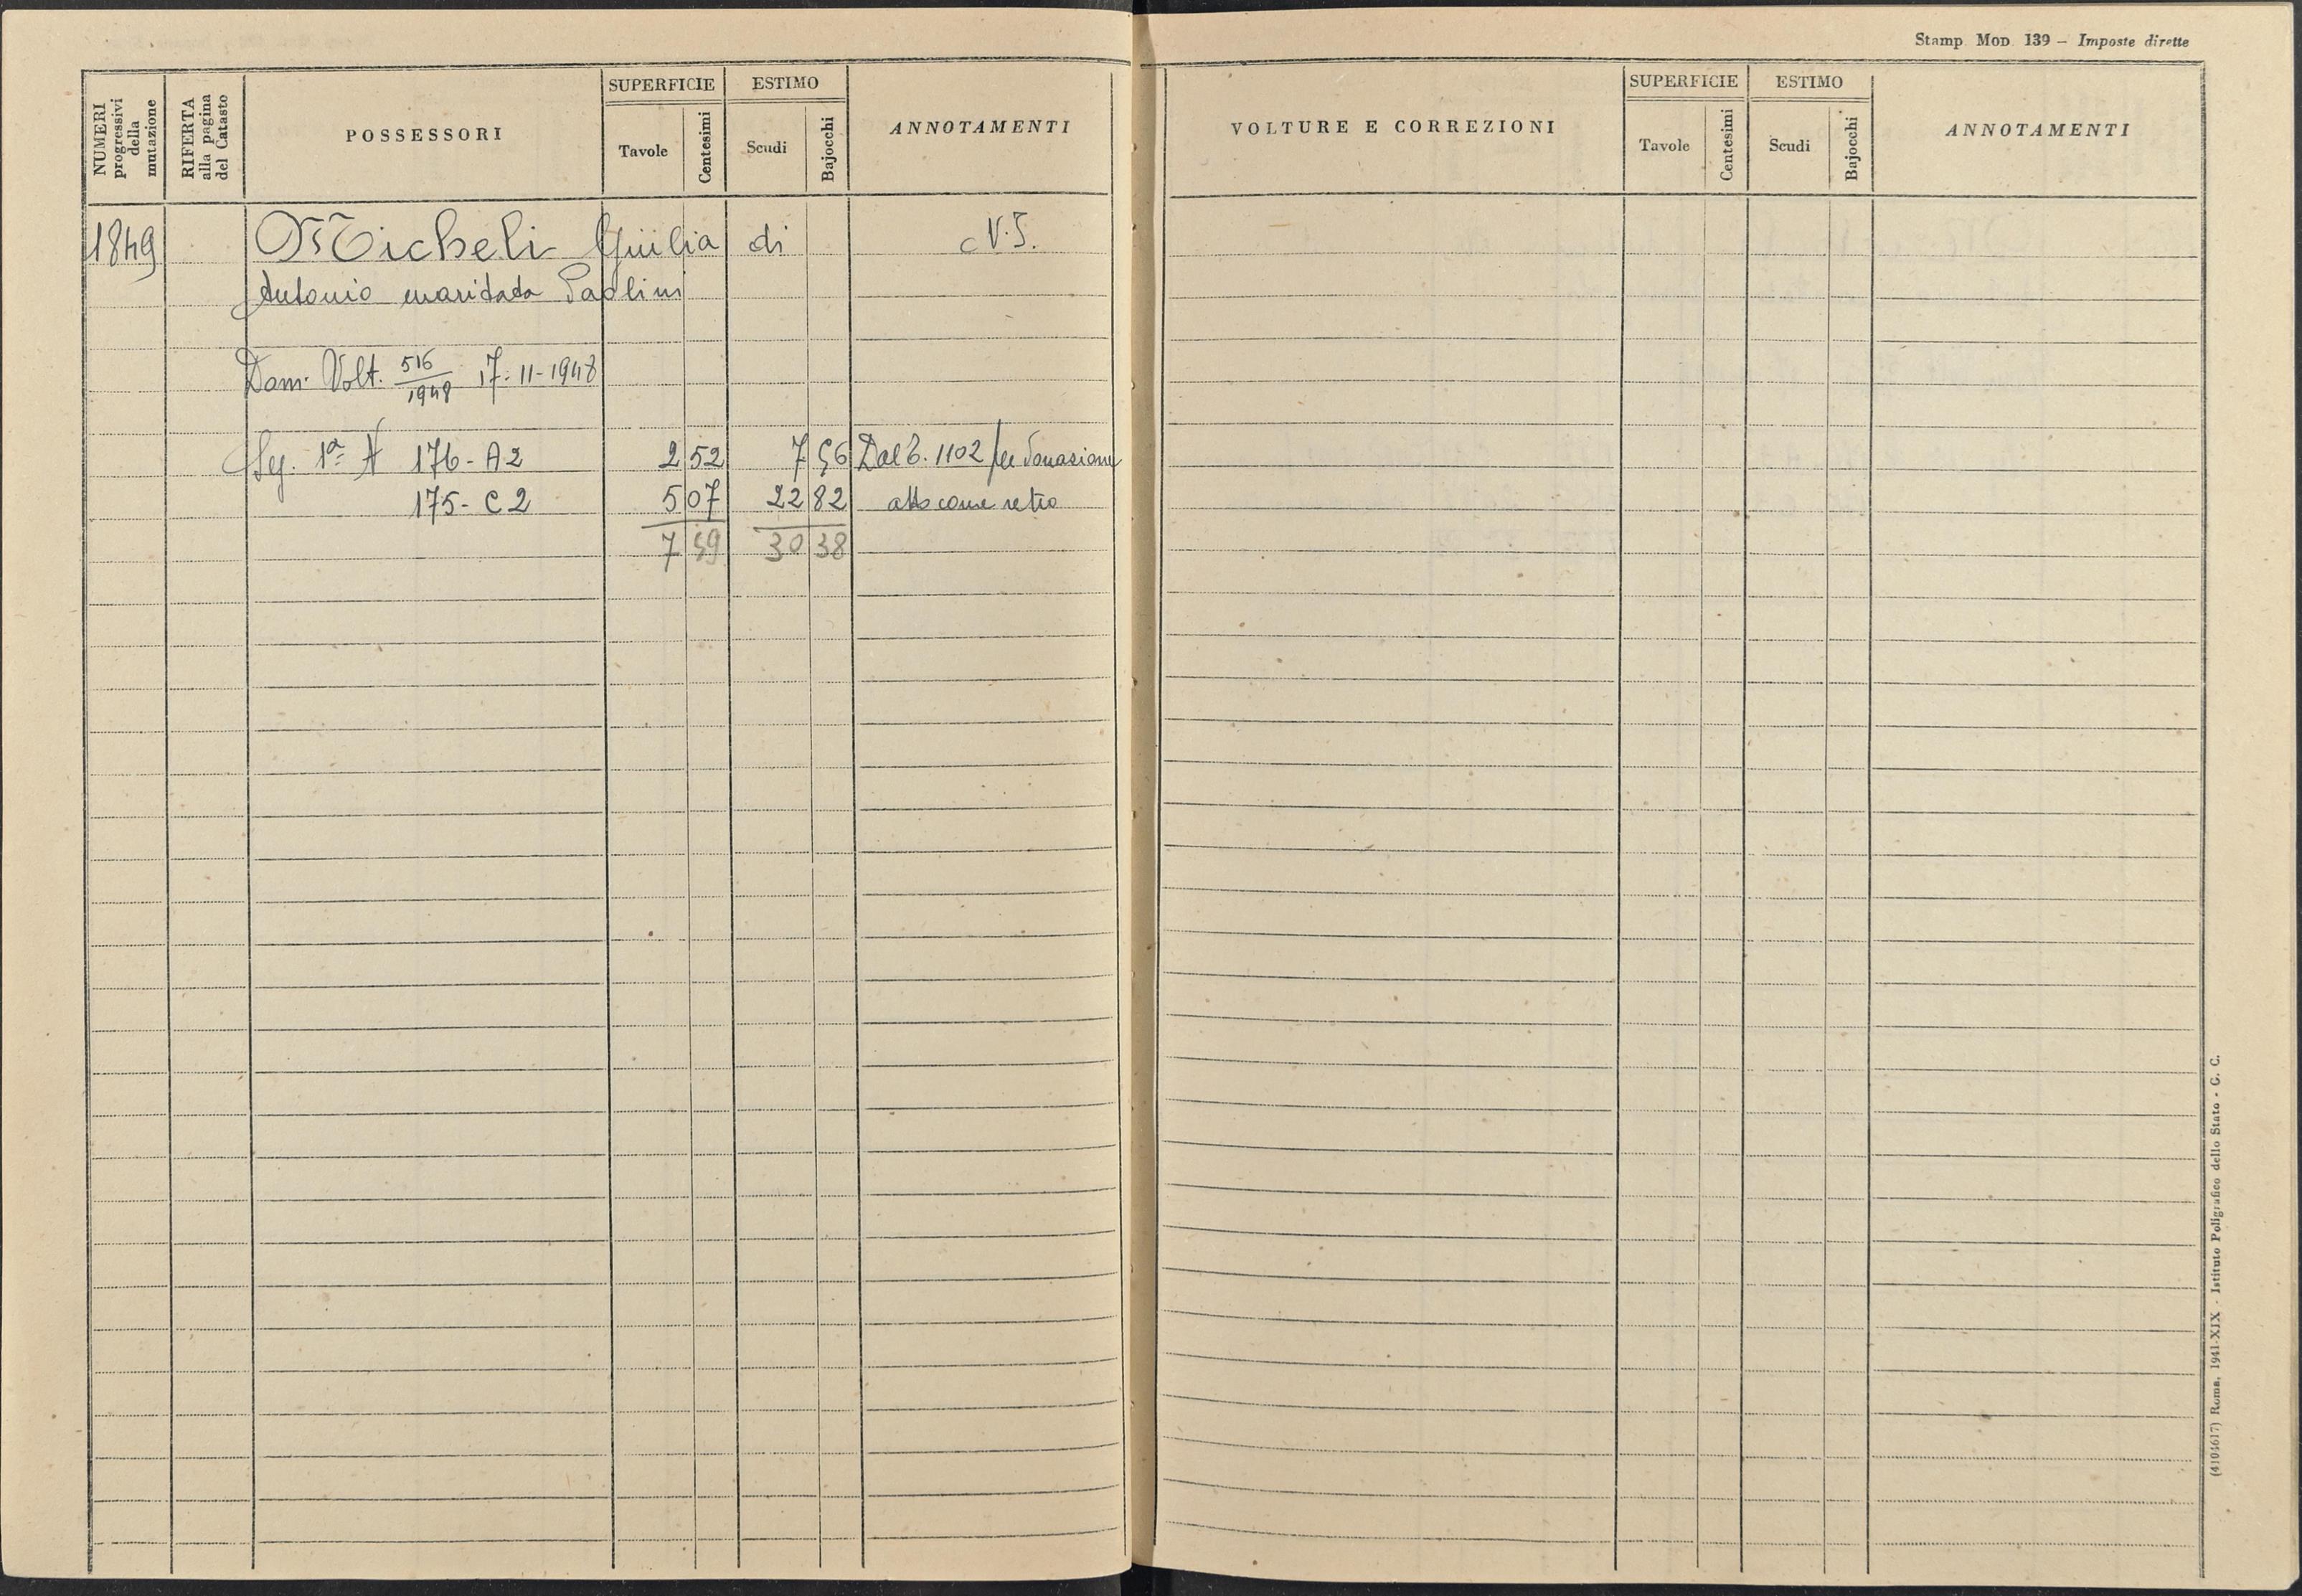 Stamp Mod 139 – Imposte dirette
NUMERI progressivi della mutazione
RIFERTA alla pagina del Catasto
POSSESSORI
SUPERFICIE
Tavole
Centesimi
ESTIMO
Scudi
Bajocchi
ANNOTAMENTI
VOLTURE E CORREZIONI
SUPERFICIE
Tavole
Centesimi
ESTIMO
Scudi
Bajocchi
ANNOTAMENTI
1849 Micheli Giulia di
Antonio maritata Paolini
Dom. Volt. 516/1948 17-11-1948
Sez. 1ª 176-A2 2 52 7 56 Dal 1102 per donazione
175-C2 5 07 22 82 atto come retro
7 59 30 38
(4104617) Roma, 1941-XIX - Istituto Poligrafico dello Stato - G. C.